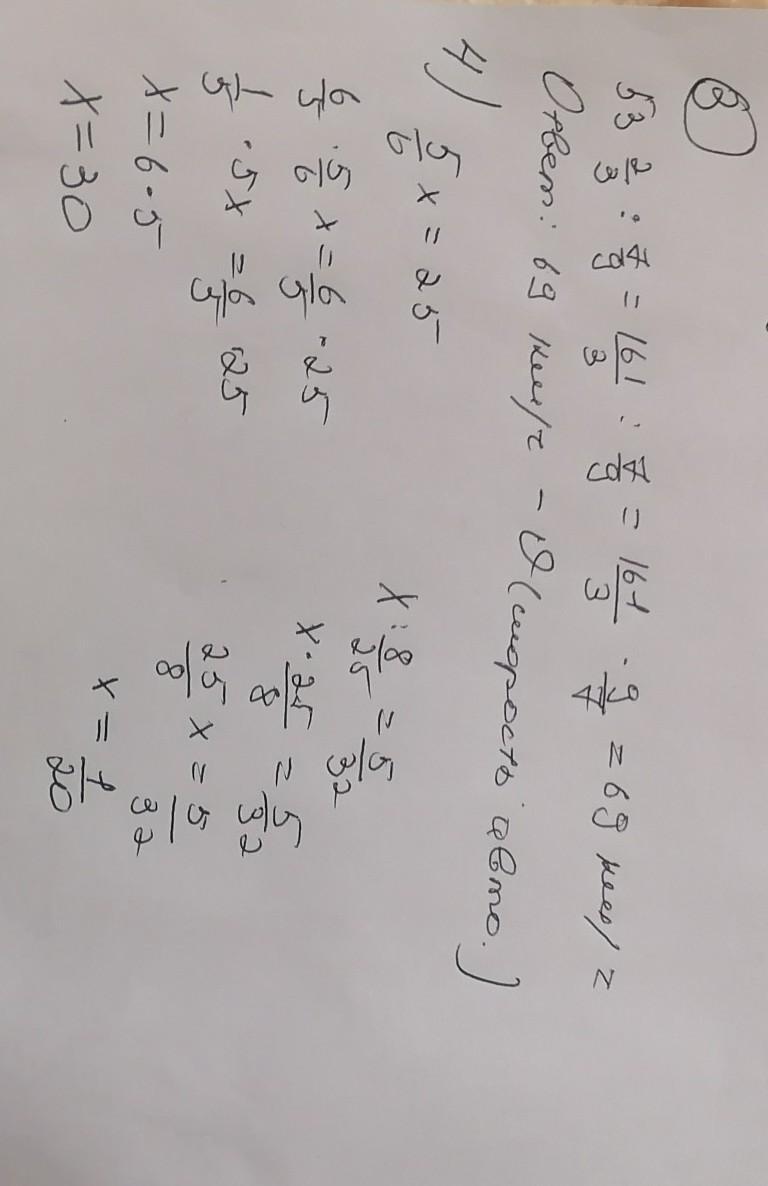 3
53 2/3 : 7/9 = 161/3 : 7/9 = 161/3 · 9/7 = 69 км/ч
Ответ: 69 км/ч – V (скорость авто.)
4) 5/6 x = 25
6/5 · 5/6 x = 6/5 · 25
1/5 · 5x = 6/5 · 25
x = 6 · 5
x = 30
x : 8/25 = 5/32
x · 25/8 = 5/32
25/8 x = 5/32
x = 1/20